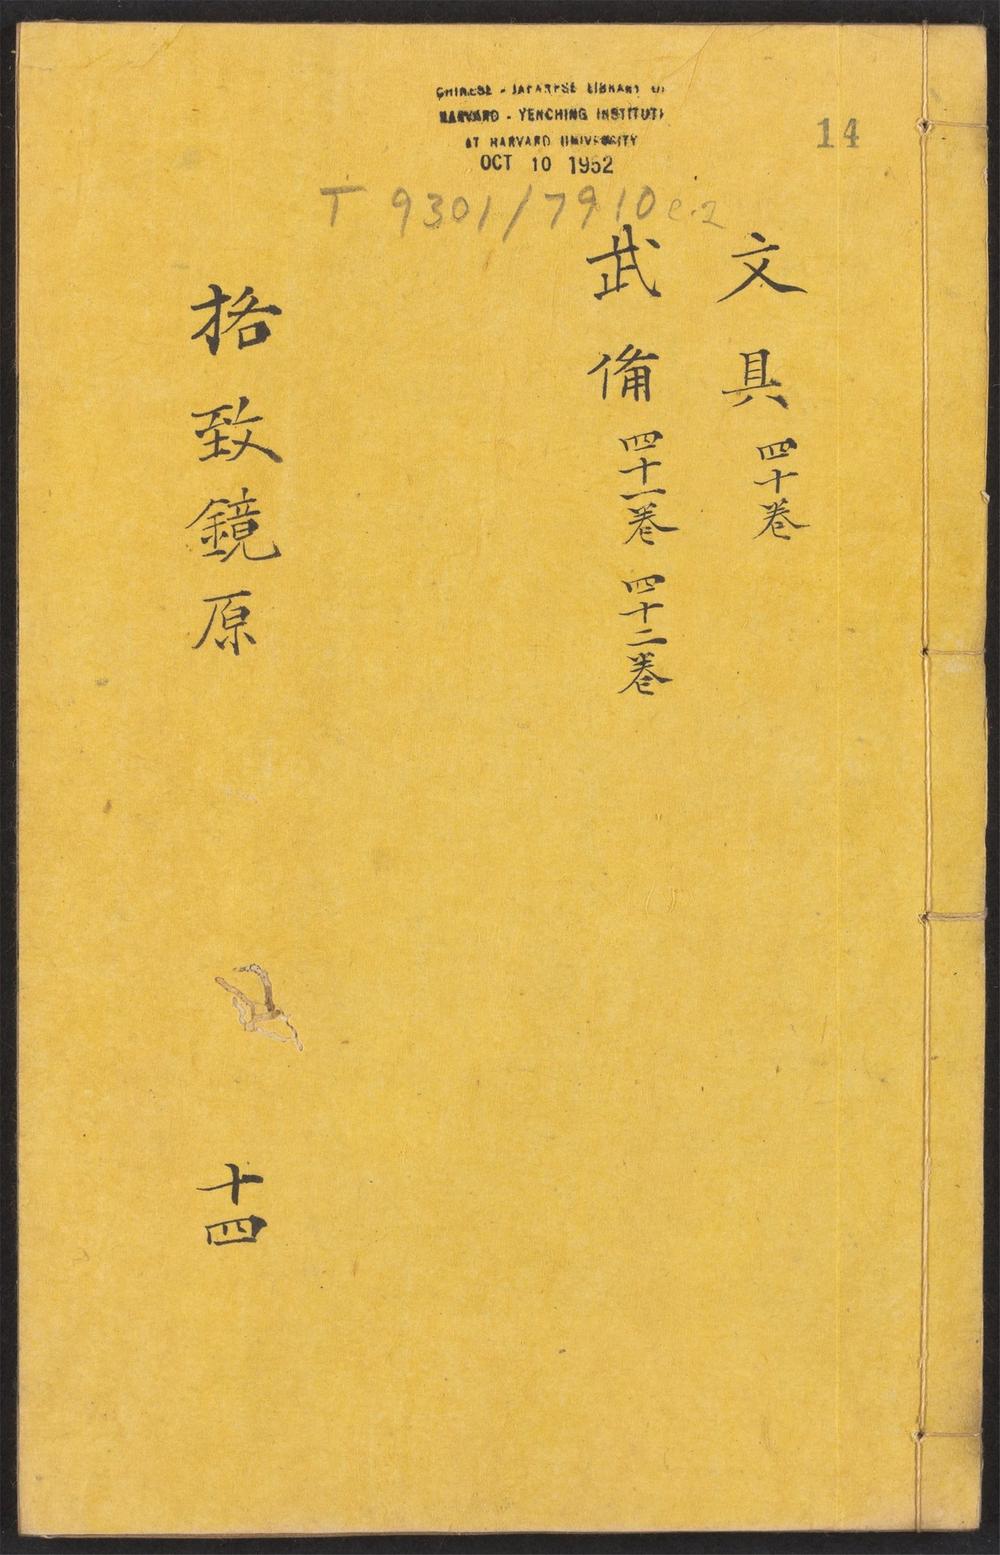 CHINESE - JAPANESE LIBRARY OF
HARVARD - YENCHING INSTITUTE
AT HARVARD UNIVERSITY
OCT 10 1952
14
T 9301/7910 c.2
文具 四十卷
武備 四十一卷 四十二卷
格致鏡原
十四